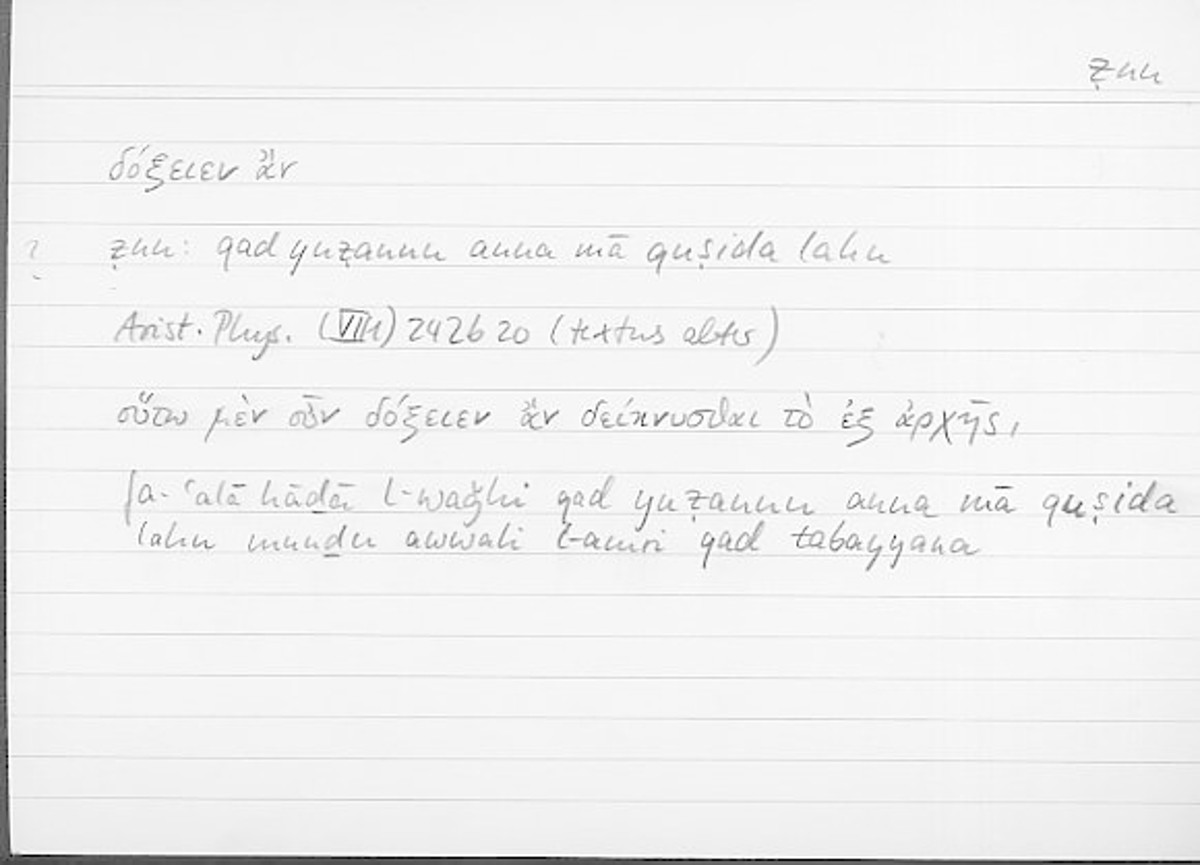 ẓnn
δόξειεν ἂν
? ẓnn: qad yuẓannu anna mā quṣida lahu
Arist. Phys. (VII1) 242b20 (textus alter)
οὕτω μὲν οὖν δόξειεν ἂν δείκνυσθαι τὸ ἐξ ἀρχῆς,
fa-ʿalā hāḏā l-waǧhi qad yuẓannu anna mā quṣida
lahu munḏu awwali l-amri qad tabayyana